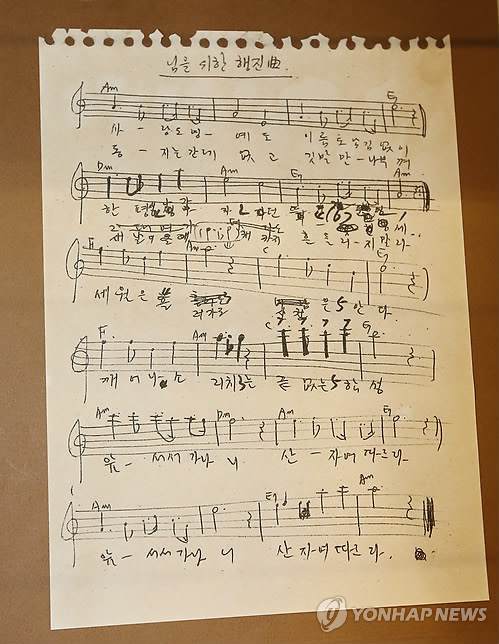 님을 위한 행진曲.
Am E7
사 - 랑도 명 - 예도 이름도 남김 없이
동 - 지는 간데 없고 깃발만 - 나부껴
Dm Am E7 Am
한 평생
새 날이 올 때까지 흔들리지 말라
F Am C E7
세월은 은 안다
F. Am C G
깨어나소 리치는 끝없는 함성
Am Dm Am E7
앞 - 서서 가나니 산 - 자여 따르라
Am E7 Am
앞 - 서서 가나니 산 자여 따르라.
YONHAP NEWS